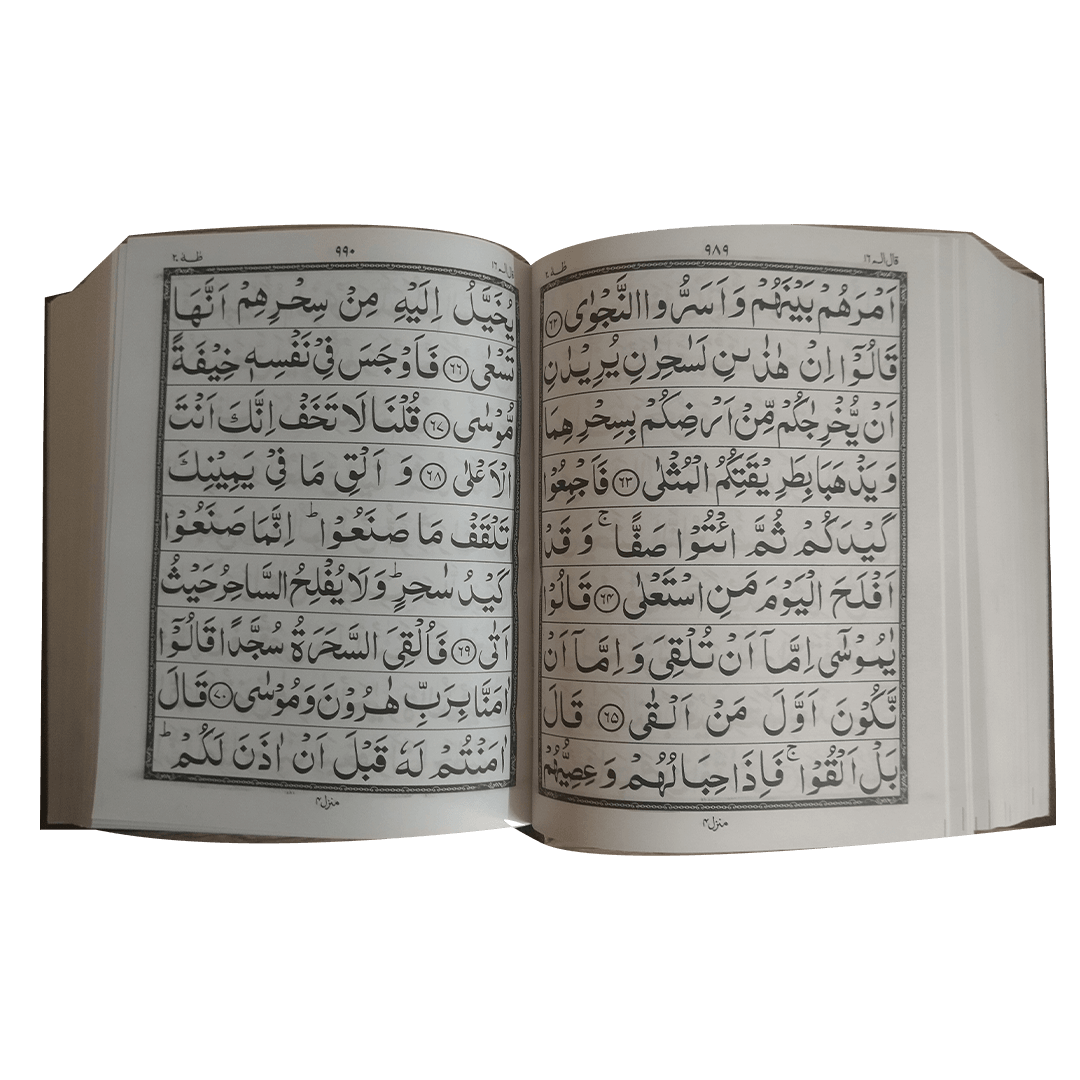 قال الم ١٦
٩٨٩
طٰهٰ ٢٠
اَمْرَهُمْ بَيْنَهُمْ وَاَسَرُّوا النَّجْوٰى ﴿٦٢﴾
قَالُوْۤا اِنْ هٰذٰىنِ لَسٰحِرٰنِ يُرِيْدٰنِ
اَنْ يُّخْرِجٰكُمْ مِّنْ اَرْضِكُمْ بِسِحْرِهِمَا
وَيَذْهَبَا بِطَرِيْقَتِكُمُ الْمُثْلٰى ﴿٦٣﴾ فَاَجْمِعُوْا
كَيْدَكُمْ ثُمَّ ائْتُوْا صَفًّا ۚ وَقَدْ
اَفْلَحَ الْيَوْمَ مَنِ اسْتَعْلٰى ﴿٦٤﴾ قَالُوْا
يٰمُوْسٰۤى اِمَّاۤ اَنْ تُلْقِيَ وَاِمَّاۤ اَنْ
نَّكُوْنَ اَوَّلَ مَنْ اَلْقٰى ﴿٦٥﴾ قَالَ
بَلْ اَلْقُوْا ۚ فَاِذَا حِبَالُهُمْ وَعِصِيُّهُمْ
منزل ٤
قال الم ١٦
٩٩٠
طٰهٰ ٢٠
يُخَيَّلُ اِلَيْهِ مِنْ سِحْرِهِمْ اَنَّهَا
تَسْعٰى ﴿٦٦﴾ فَاَوْجَسَ فِيْ نَفْسِهٖ خِيْفَةً
مُّوْسٰى ﴿٦٧﴾ قُلْنَا لَا تَخَفْ اِنَّكَ اَنْتَ
الْاَعْلٰى ﴿٦٨﴾ وَاَلْقِ مَا فِيْ يَمِيْنِكَ
تَلْقَفْ مَا صَنَعُوْا ؕ اِنَّمَا صَنَعُوْا
كَيْدُ سٰحِرٍ ؕ وَلَا يُفْلِحُ السَّاحِرُ حَيْثُ
اَتٰى ﴿٦٩﴾ فَاُلْقِيَ السَّحَرَةُ سُجَّدًا قَالُوْۤا
اٰمَنَّا بِرَبِّ هٰرُوْنَ وَمُوْسٰى ﴿٧٠﴾ قَالَ
اٰمَنْتُمْ لَهٗ قَبْلَ اَنْ اٰذَنَ لَكُمْ ؕ
منزل ٤